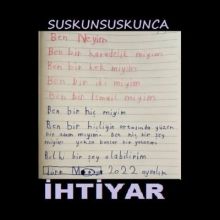 SUSKUNSUSKUNCA
Ben Neyim
Ben bir karadelik miyim
Ben bir kek miyim
Ben bir iki miyim
Ben bir İsmail miyim
Ben bir hiç miyim
Ben bir hiçliğin ortasında yüzen
bir adam mıyım. Ben hiç bir şey
miyim yoksa bunlar bir yanılgı mı
Belki bir şey olabilirim
2022
İHTİYAR